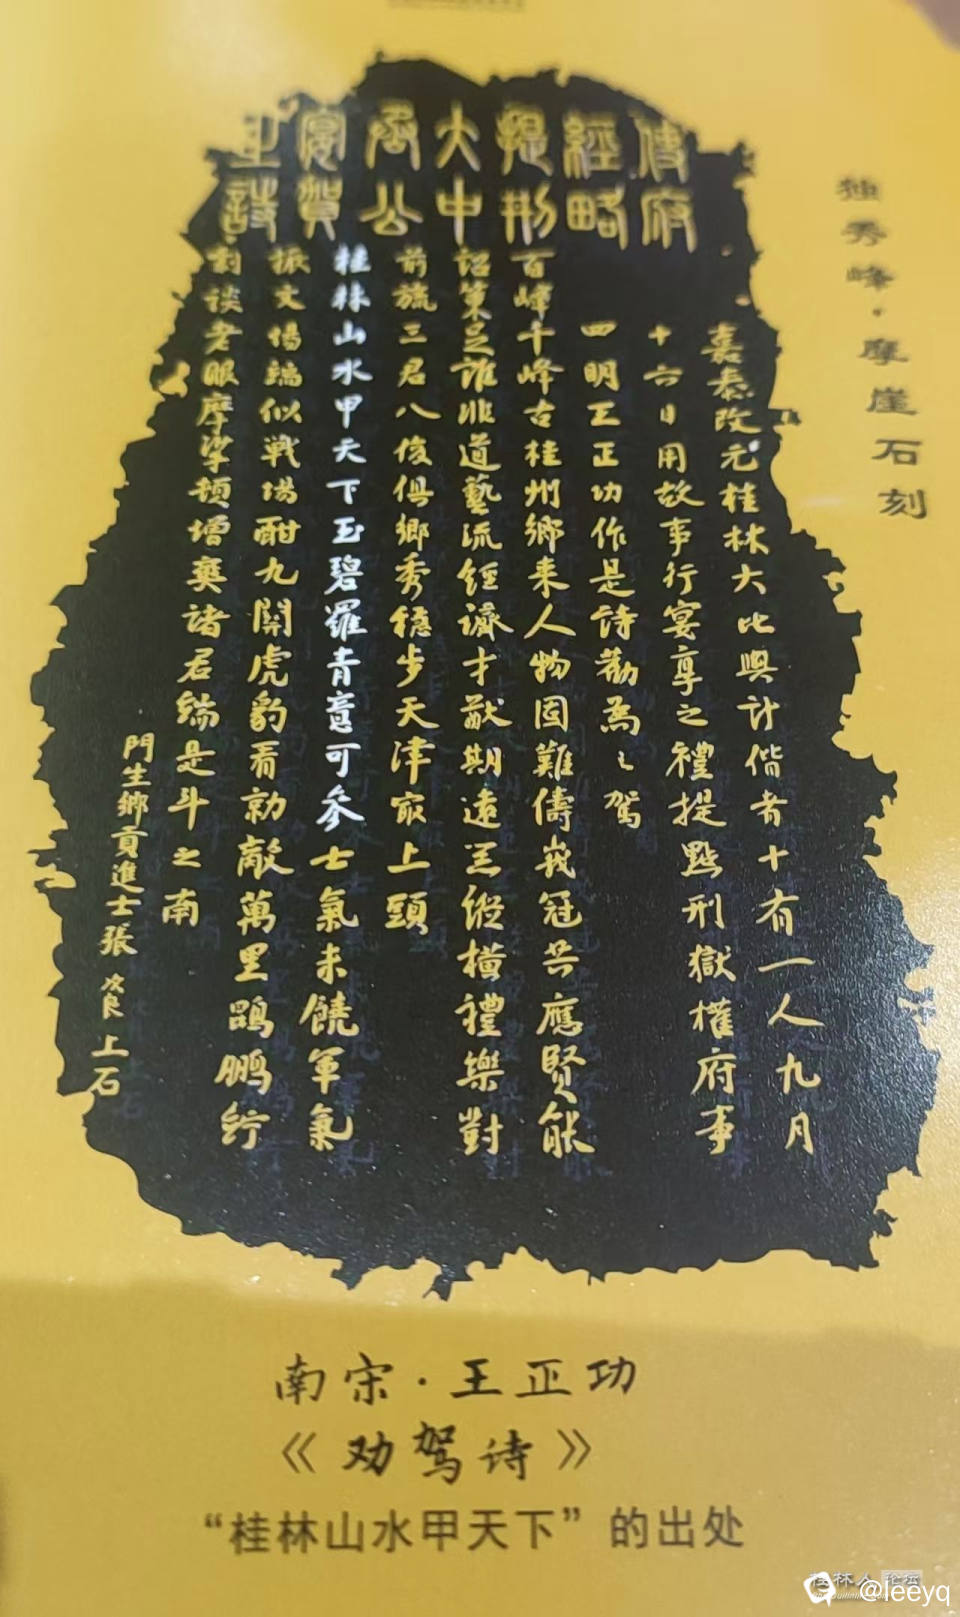 獨秀峰·摩崖石刻
使府經略提刑大中丞公宴賀之詩
嘉泰改元桂林大比與計偕者十有一人九月
十六日用故事行宴享之禮提點刑獄權府事
四明王正功作是詩勸為之駕
百峰千峰古桂州鄉来人物固難儔峩冠共應賢能
詔策足誰非道藝流經濟才猷期遠器縱横禮樂對
前旒三君八俊俱鄉秀穩步天津冣上頭
桂林山水甲天下玉碧羅青意可参士氣未饒軍氣
振文場端似戦場酣九關虎豹看勍敵萬里鵾鵬佇
劇談老眼摩挲頓增爽諸君端是斗之南
門生鄉貢進士張次良上石
南宋·王正功
《劝驾诗》
“桂林山水甲天下”的出处
桂林人论坛
@leeyq